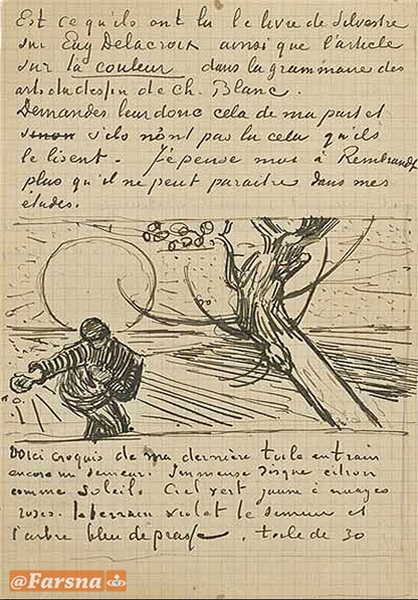 Est ce qu'ils ont lu le livre de Silvestre
sur Eug Delacroix ainsi que l'article
sur la couleur dans la grammaire des
arts du dessin de Ch. Blanc.
Demandes leur donc cela de ma part et
sinon s'ils n'ont pas lu cela qu'ils
le lisent. Je pense moi à Rembrandt
plus qu'il ne peut paraitre dans mes
études.
Voici croquis de ma dernière toile en train
encore un semeur. Immense disque citron
comme soleil. Ciel vert jaune à nuages
roses. le terrain violet le semeur et
l'arbre bleu de prusse. toile de 30
@Farsna